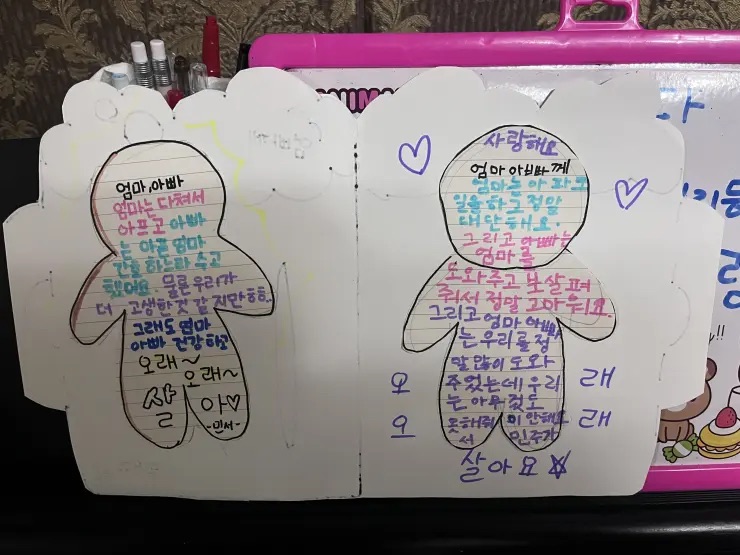 엄마,아빠
엄마는 다쳐서
아프고 아빠
는 아픈 엄마
간호 하느라 수고
했어요 물론 우리가
더 고생한것 같지만 흐흐..
그래도 엄마
아빠 건강하고
오래~
오래~
살
아♡
-민서-
사랑해요
엄마 아빠께
엄마는 아파도
일을 하고 정말
대단해요.
그리고 아빠는
엄마를
도와주고 보살펴
줘서 정말 고마워요.
그리고 엄마 아빠
는 우리를 정
말 많이 도와
주었는데 우리
는 아무것도
못해줘 미안해요
서 민주가
오 래
오 래
살아요